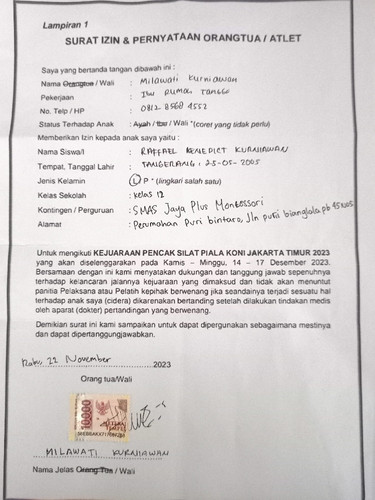 Lampiran 1
SURAT IZIN & PERNYATAAN ORANGTUA / ATLET
Saya yang bertanda tangan dibawah ini :
Nama Orangtua / Wali : Milawati Kurniawan
Pekerjaan : Ibu Rumah Tangga
No. Telp / HP : 0812 8568 4552
Status Terhadap Anak : Ayah / Ibu / Wali *(coret yang tidak perlu)
Memberikan Izin kepada anak saya yaitu :
Nama Siswa/I : RAFFAEL BENEDICT KURNIAWAN
Tempat, Tanggal Lahir : TANGERANG, 25-05-2005
Jenis Kelamin : L/ P * (lingkari salah satu)
Kelas Sekolah : Kelas 12
Kontingen / Perguruan : SMAS Jaya Plus Montessori
Alamat : Perumahan Puri bintaro, Jln puri bianglala pb
Untuk mengikuti KEJUARAAN PENCAK SILAT PIALA KONI JAKARTA TIMUR 2023
yang akan diselenggarakan pada Kamis – Minggu, 14 – 17 Desember 2023.
Bersamaan dengan ini kami menyatakan dukungan dan tanggung jawab sepenuhnya
terhadap kelancaran jalannya kejuaraan yang dimaksud dan tidak akan menuntut
panitia Pelaksana atau Pelatih kepihak berwenang jika seandainya terjadi sesuatu hal
terhadap anak saya (cidera) dikarenakan bertanding setelah dilakukan tindakan medis
oleh aparat (dokter) pertandingan yang berwenang.
Demikian surat ini kami sampaikan untuk dapat dipergunakan sebagaimana mestinya
dan dapat dipertanggungjawabkan.
Rabu, 22 November 2023
Orang tua/Wali
10000
MILAWATI KURNIAWAN
Nama Jelas Orang Tua / Wali